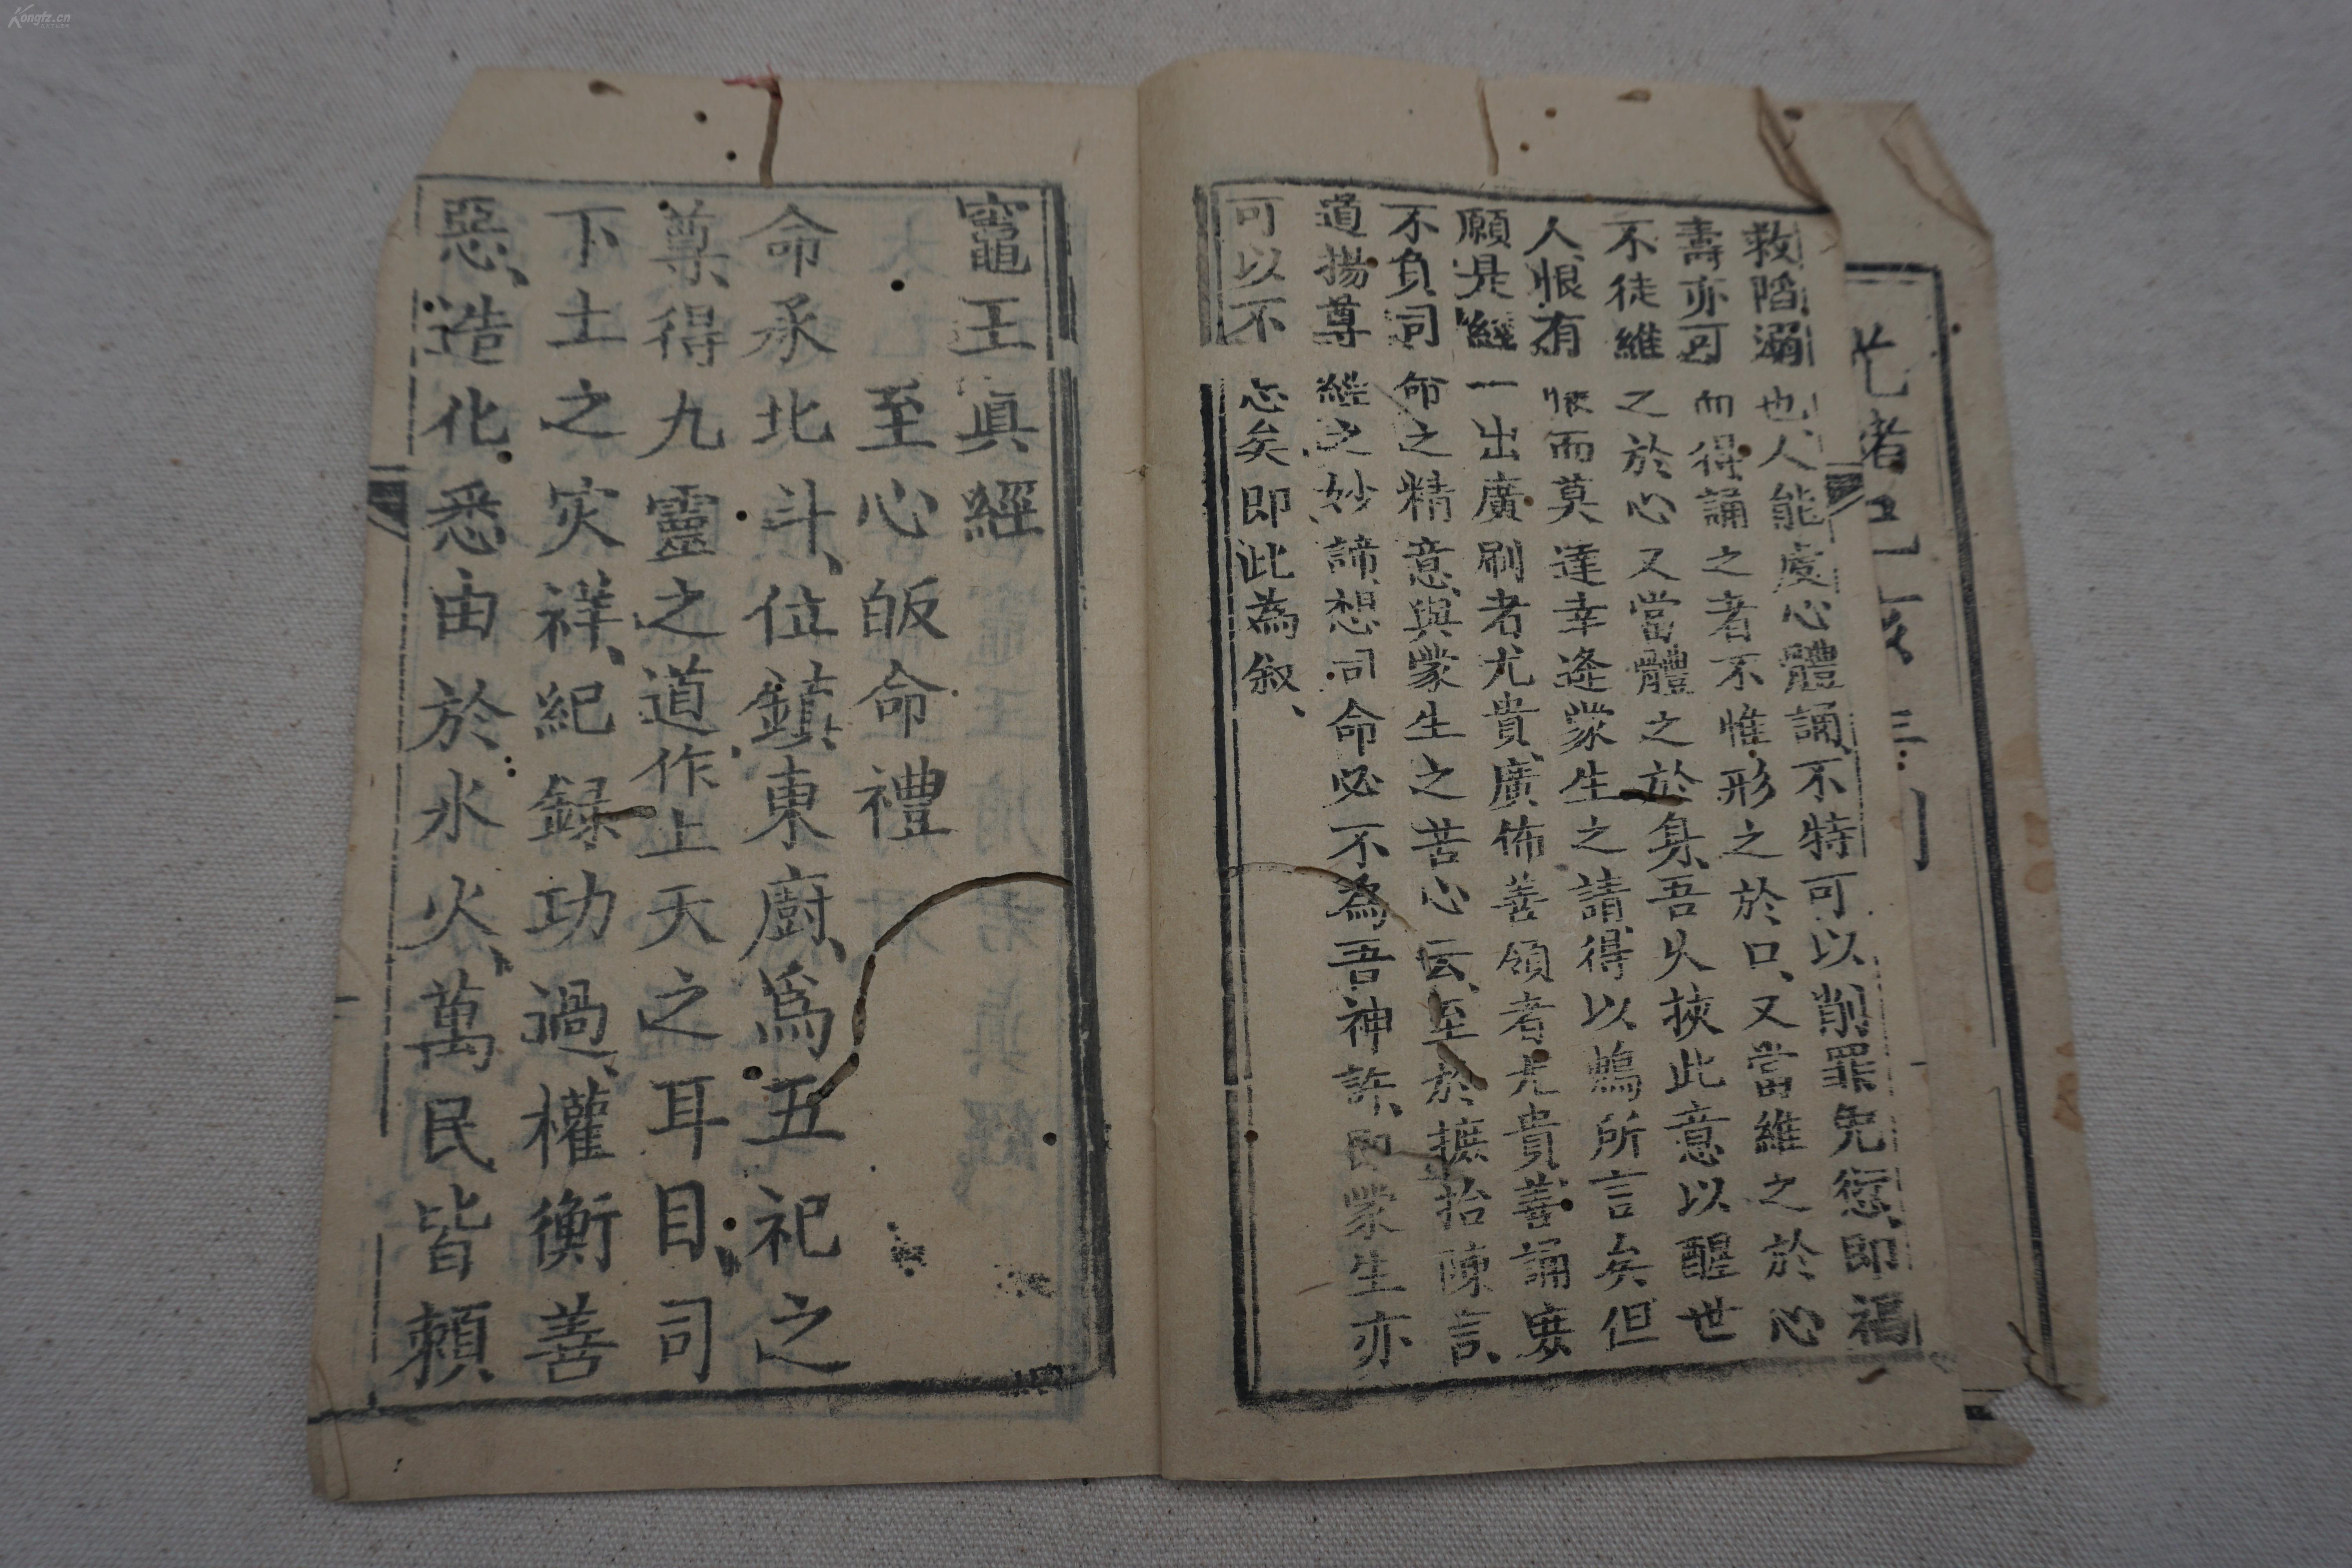 Kongfz.cn
救陷溺也、人能虔心體誦、不特可以削罪免愆、即福
壽亦可而得誦之者不惟形之於口、又當維之於心
不徒維之於心又當體之於身、吾久挾此意以醒世
人、恨有恨而莫達幸逢蒙生之請、得以鳴所言矣但
願是經一出廣刷者尤貴、廣佈善領者尤貴、善誦庶
不負司命之精意、與蒙生之苦心云、至於摭拾陳言、
道揚尊經之妙諦、想司命必不為吾神許、即蒙生亦
可以不必矣即此為叙、
竈王眞經
至心皈命禮
命承北斗、位鎮東廚、爲五祀之
尊、得九靈之道作上天之耳目、司
下土之灾祥、紀録功過、權衡善
惡、造化悉由於水火、萬民皆賴